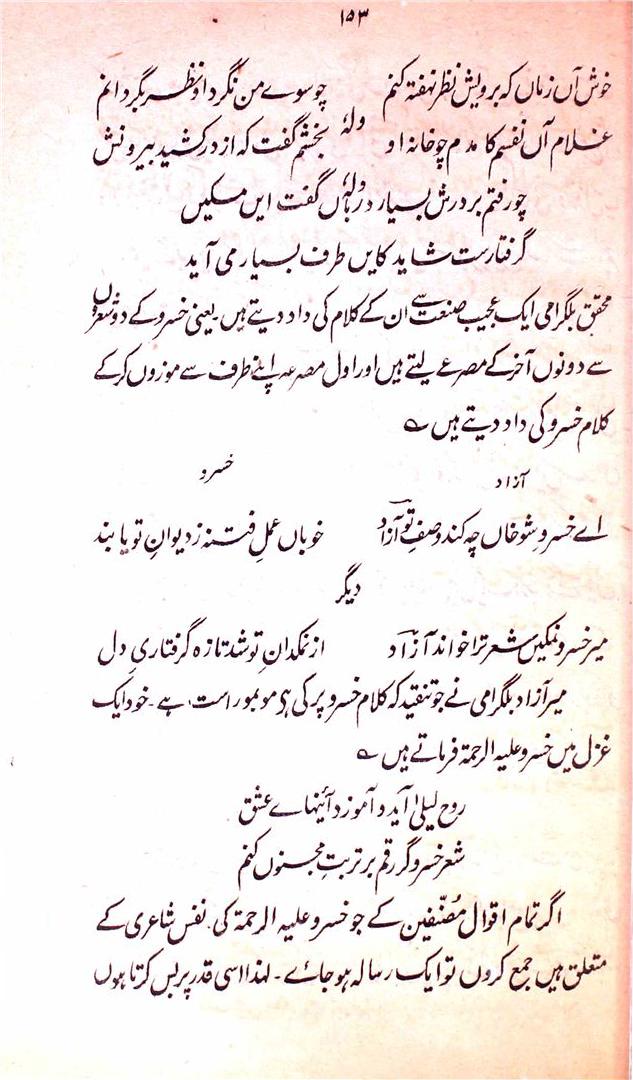 ۱۵۳
خوش آں زماں کہ برویش نظر نہفتہ کنم    چو سوے من نگرد او نظر بگردانم
ولہٗ
غلام آں نفسم کامدم چو خانہ او    بخشم گفت کہ از در کشید بیرونش
ولہٗ
چو رفتم بر درش بسیار درباں گفت ایں مسکیں
گرفتارست شاید کایں طرف بسیار می آید
محقق بلگرامی ایک عجیب صنعت سے ان کے کلام کی داد دیتے ہیں۔ یعنی خسرو کے دو شعروں
سے دونوں آخر کے مصرعے لیتے ہیں اور اول مصرعہ اپنے طرف سے موزوں کرکے
کلام خسرو کی داد دیتے ہیں ؎
آزاد    خسرو
اے خسروِ شوخاں چہ کند وصفِ تو آزاد    خوباں عملِ فتنہ ز دیوانِ تو یابند
دیگر
میر خسرو نمکیں شعر ترا خواند آزاد    از نمکدانِ تو شد تازہ گرفتاریِ دل
میر آزاد بلگرامی نے جو تنقید کہ کلام خسرو پر کی ہی مو بمو راست ہے۔ خود ایک
غزل میں خسرو علیہ الرحمۃ فرماتے ہیں ؎
روح لیلیٰ آید و آموزد آئینہاے عشق
شعر خسرو گر رقم بر تربتِ مجنوں کنم
اگر تمام اقوال مُصنّفین کے جو خسرو علیہ الرحمۃ کی نفس شاعری کے
متعلق ہیں جمع کروں تو ایک رسالہ ہو جائے۔ لہذا اسی قدر پر بس کرتا ہوں